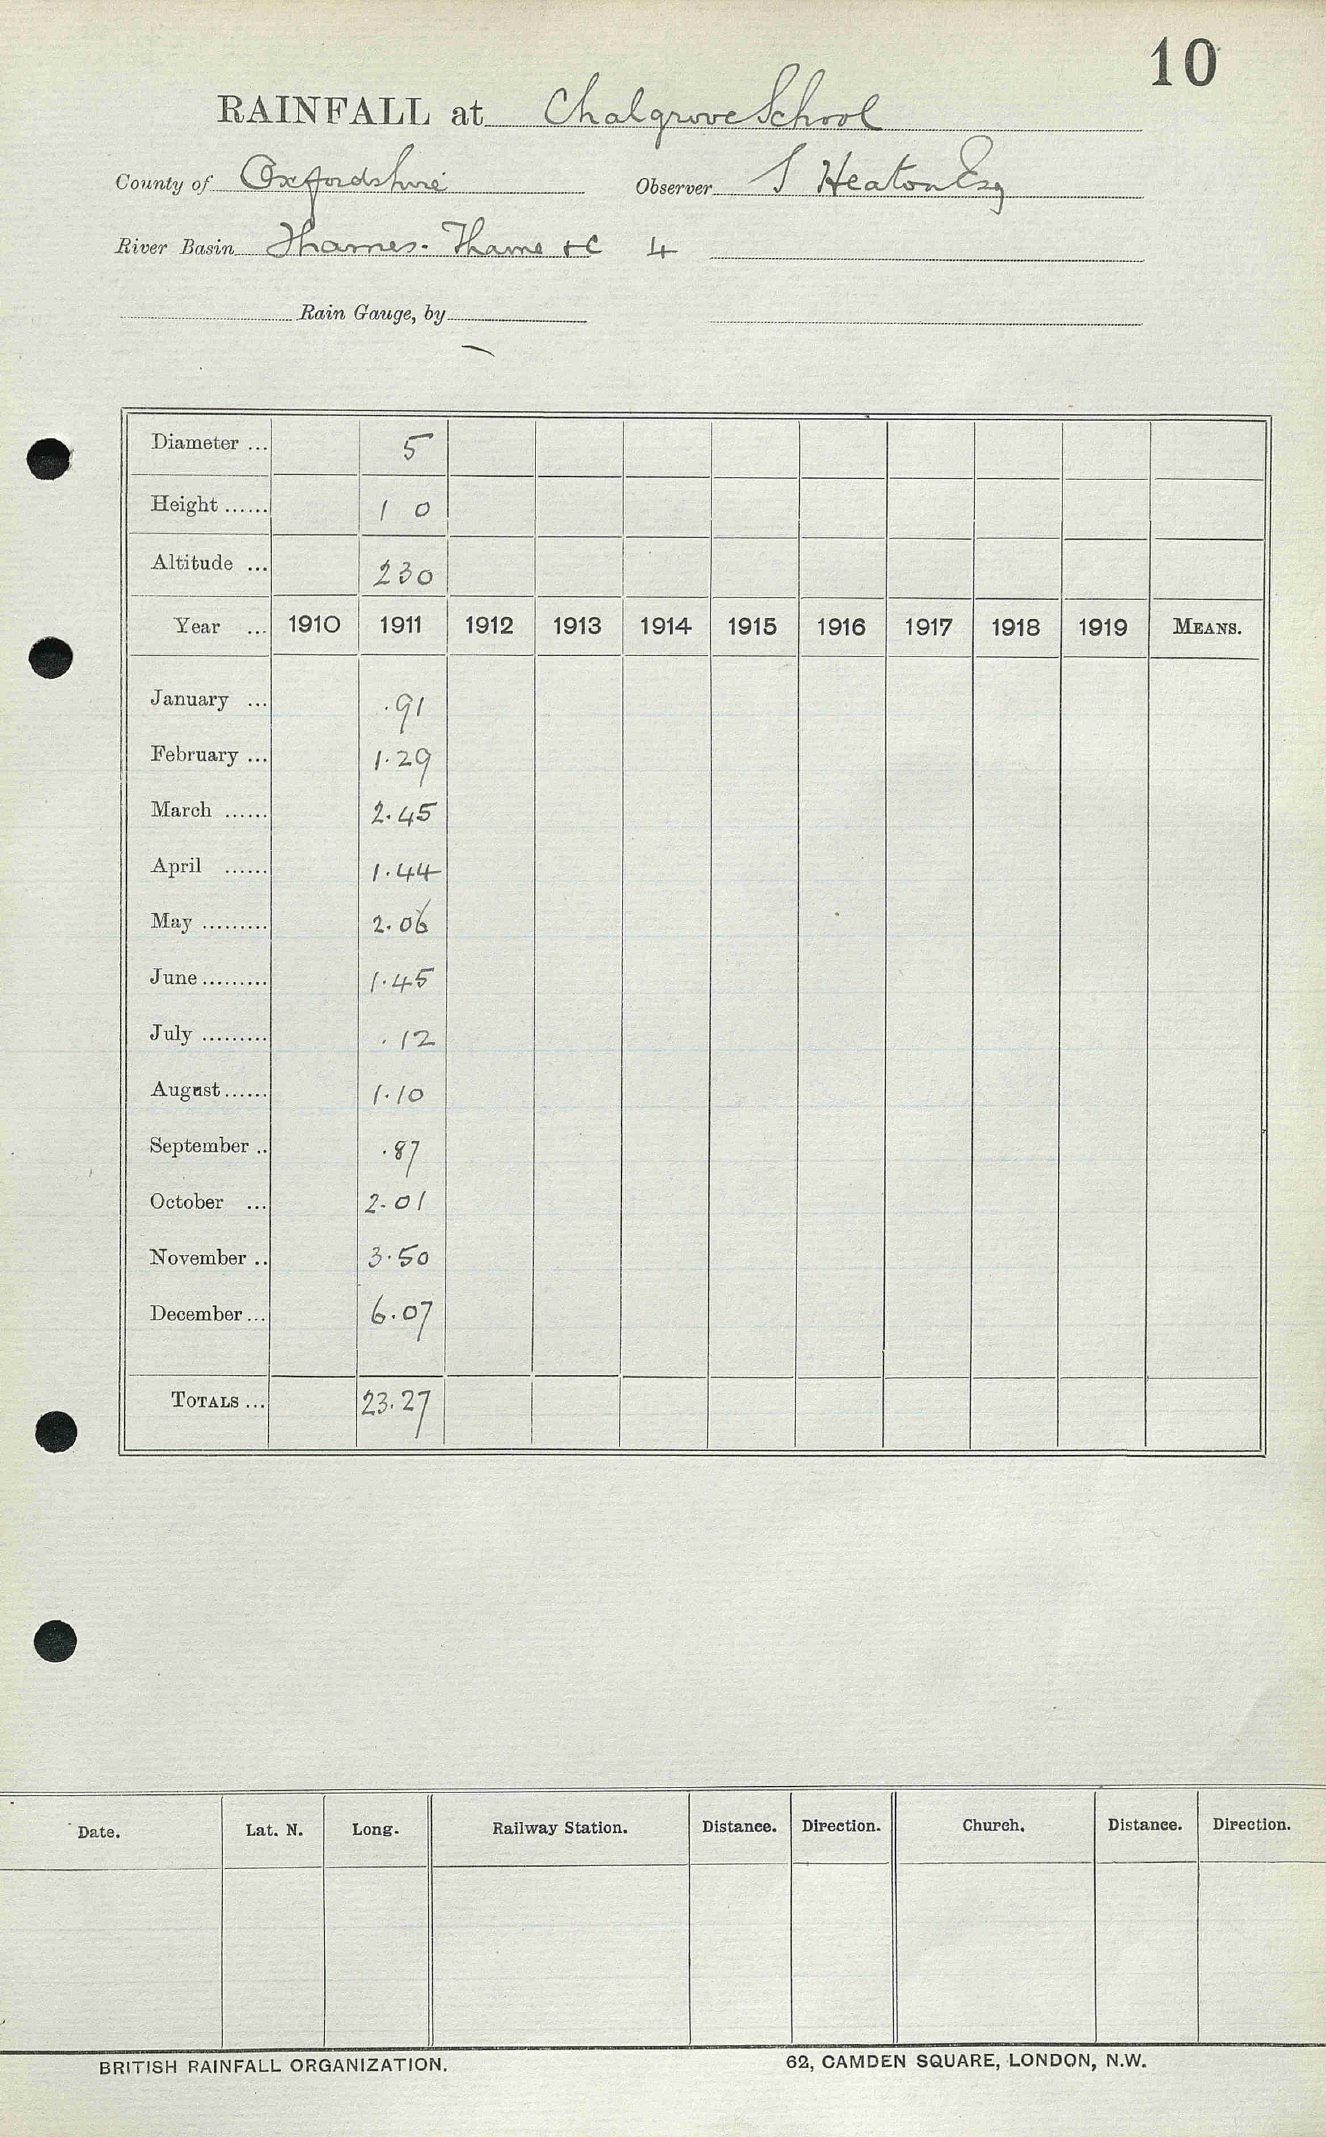 10
RAINFALL at Chalgrove School
County of Oxfordshire Observer S Heaton Esq
River Basin Thames. Thame &c 4
Rain Gauge, by
Diameter ... 5
Height ...... 1 0
Altitude ... 230
Year ... 1910 1911 1912 1913 1914 1915 1916 1917 1918 1919 MEANS.
January ... .91
February ... 1.29
March ...... 2.45
April ...... 1.44
May ......... 2.06
June ......... 1.45
July ......... .12
August ...... 1.10
September .. .87
October ... 2.01
November .. 3.50
December ... 6.07
TOTALS ... 23.27
Date. Lat. N. Long. Railway Station. Distance. Direction. Church. Distance. Direction.
BRITISH RAINFALL ORGANIZATION. 62, CAMDEN SQUARE, LONDON, N.W.